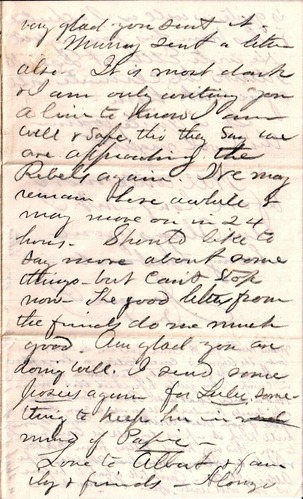 very glad you sent it -
Murray sent a letter
also. It is most dark
& am only writing you
a line to know I am
well & safe, tho they say we
are approaching the
Rebels again. We may
remain here awhile &
may move on in 24
hours. Should like to
say more about some
things - but can't stop
now. The good letters from
the friends do me much
good. Am glad you are
doing well. I send some
again for Lulie, some-
thing to keep her in
mind of Papa -
Love to Albert & fam
ily & friends - Alonzo